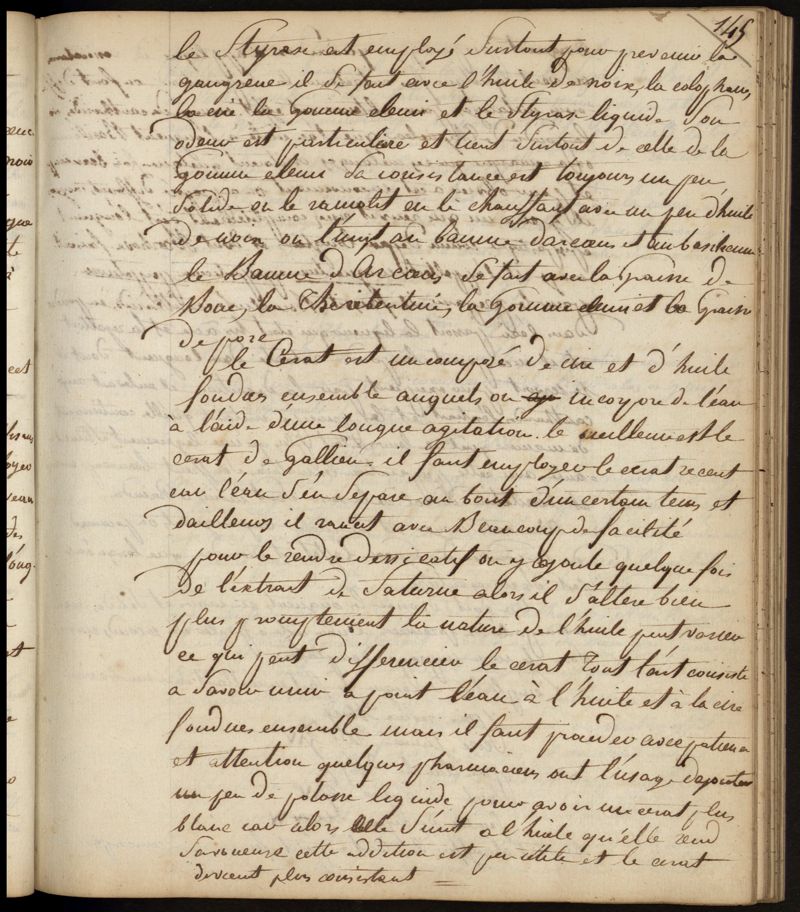 145
le Styrax est employé surtout pour prevenir la
gangrene il se fait avec l'huile de noix, la colophane,
la cire la gomme elemi et le Styrax liquide. Son
odeur est particulière et tient surtout de celle de la
gomme elemi Sa consistance est toujours un peu
solide on le ramolit en le chauffant avec un peu d'huile
de noix on l'unit au baume d'arcoeus et au basilicum
le Baume d'Arcoeus se fait avec la graisse de
Bouc, la therebentine, la gomme elemi et la graisse
de porc
le Cerat est un composé de cire et d'huile
fondues ensemble auquels on incorpore de l'eau
à l'aide d'une longue agitation. le meilleur est le
cerat de Gallien. il faut employer le cerat recent
car l'eau s'en separe au bout d'un certain tems et
dailleurs il rancit avec Beaucoup de facilité
pour le rendre dessicatif on y ajoute quelque fois
de l'extrait de Saturne alors il s'altere bien
plus promptement la nature de l'huile peut varier
ce qui peut differencier le cerat tout l'art consiste
a savoir unir a point l'eau à l'huile et à la cire
fondues ensemble mais il faut proceder avec patience
et attention quelques pharmaciens ont l'usage d'ajouter
un peu de potasse liquide pour avoir un cerat plus
blanc car alors elle s'unit a l'huile qu'elle rend
savoneuse cette addition est peu utile et le cerat
devient plus consistant =